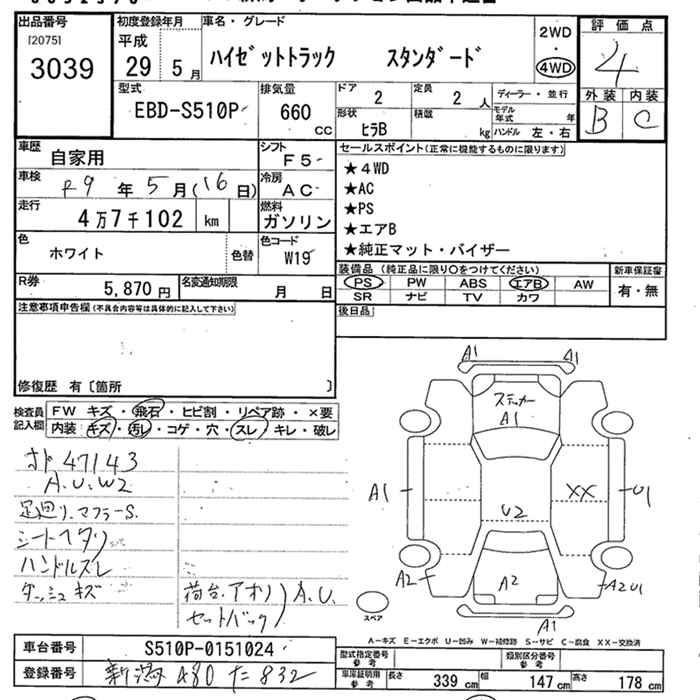 出品番号
[2075]
3039
初度登録年月
平成
29 5月
車名・グレード
ハイゼットトラック スタンダード
2WD
・
4WD
評価点
4
外装 内装
B C
型式
EBD-S510P
排気量
660
CC
ドア
2
定員
2 人
ディーラー・並行
モデル年式 年
ハンドル 左・右
形状
ヒラB
積載
kg
車歴
自家用
シフト
F5
車検
R9年5月(16日)
冷房
AC
走行
4万7千102 km
燃料
ガソリン
色
ホワイト
色替
色コード
W19
R券
5,870円
名変通知期限
月 日
セールスポイント(正常に機能するものに限ります)
★4WD
★AC
★PS
★エアB
★純正マット・バイザー
装備品(純正品に限り○をつけてください)
PS PW ABS エアB AW
SR ナビ TV カワ
新車保証書
有・無
後日品
注意事項申告欄(不具合内容等は具体的に記入して下さい)
修復歴 有〔箇所 〕
検査員記入欄
FW キズ・飛石・ヒビ割・リペア跡・×要
内装 キズ・汚レ・コゲ・穴・スレ・キレ・破レ
メド 47143
A.U.W2
足廻リ、マフラーS.
シートヘタリ
ハンドルスレ
ダッシュキズ
荷台、アオリ
セットバック
A.U.
A1 A1
ステッカー
A1
A1
XX
U1
U2
A2
A2
A2U1
A1
スペア
A-キズ E-エクボ U-凹み W-補修跡 S-サビ C-腐食 XX-交換済
車台番号
S510P-0151024
登録番号
新潟 480 た 832
型式指定番号
参考
類別区分番号
参考
車庫証明用
参考
長さ 339 cm 幅 147 cm 高さ 178 cm